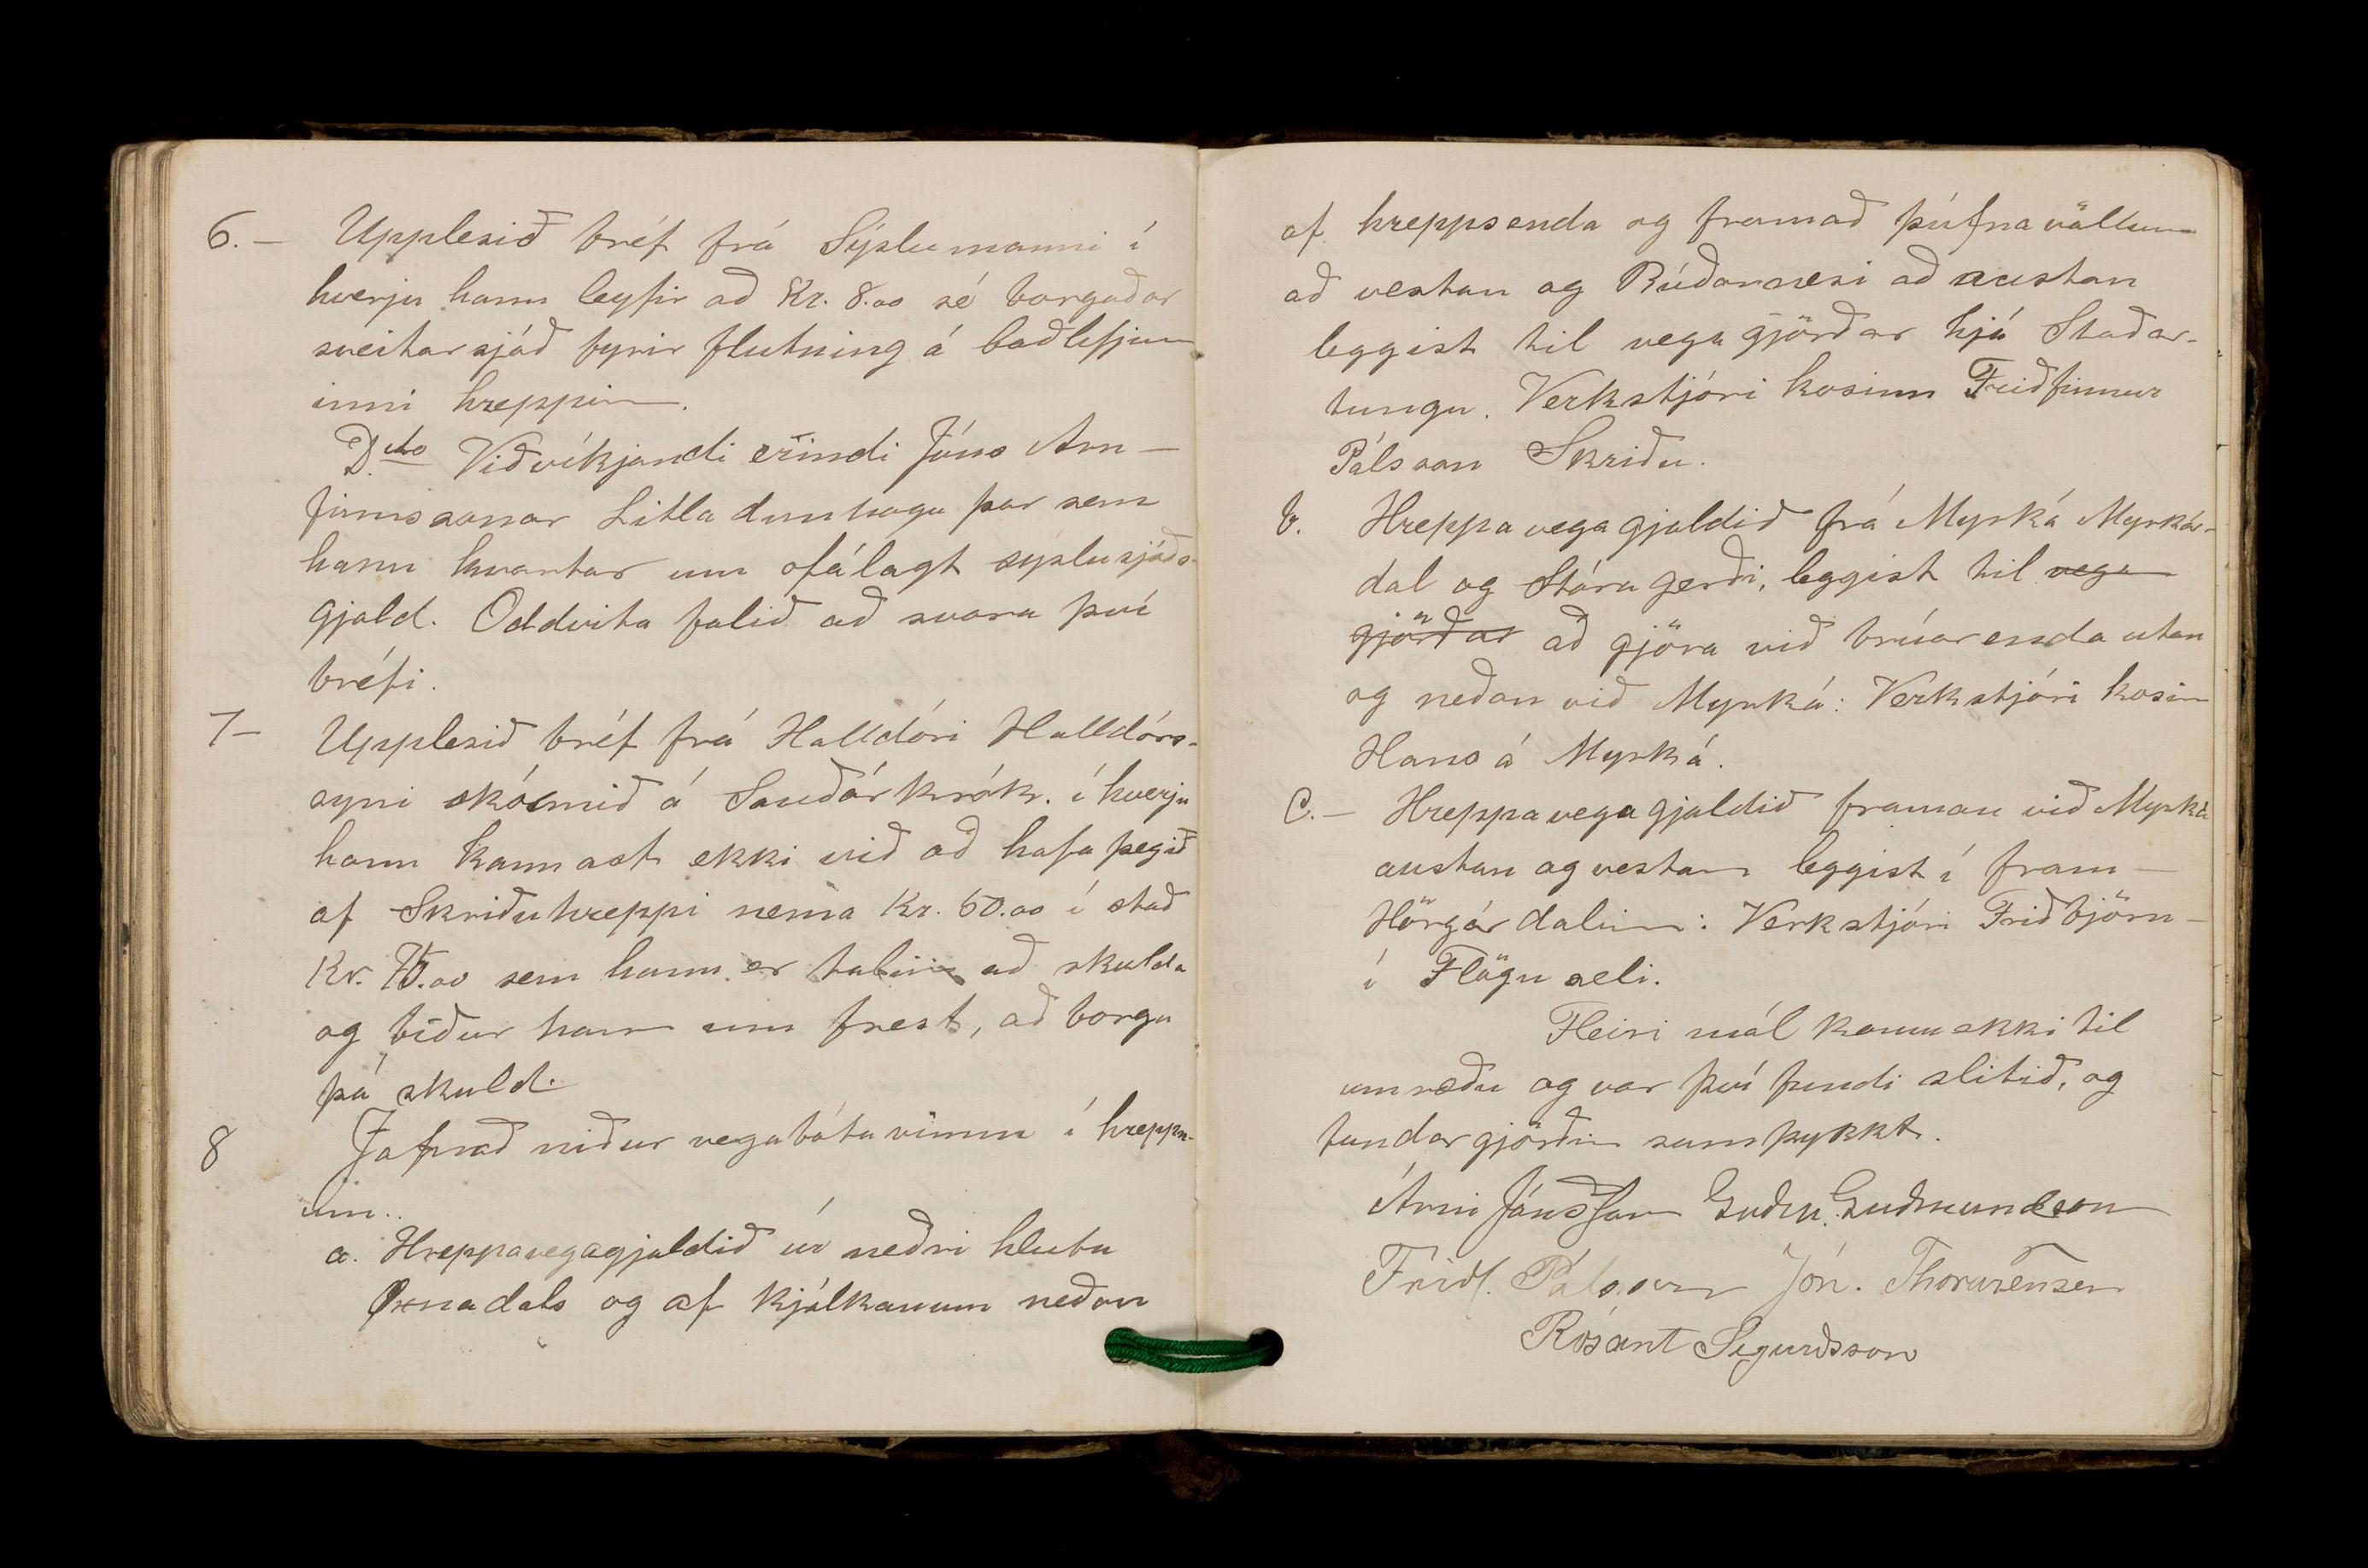 6.- Upplesið bréf frá Sýslumanni í
hverju hann leyfir að Kr. 8.00 sé borgaðar
sveitarsjóð fyrir flutning á baðlyfjum
inni hreppin.
D.ito Viðvíkjandi erindi Jóns Arn-
finnssonar Litladunhaga þar sem
hann kvartar um ofálagt sýslusjóðs-
gjald. Oddvita falið að svara því
bréfi.
7- Upplesið bréf frá Halldóri Halldórs-
syni skósmið á Sauðárkrók. í hverju
hann kannast ekki við að hafa þegið
af Skriðuhreppi nema Kr. 60.00 í stað
Kr. 75.00 sem hann er talinn að skulda
og biður hann um frest, að borga
þá skuld.
8 Jafnað niður vegabótavinnu í hreppn-
um..
a. Hreppavegagjaldið úr neðri hluta
Øxnadals og af kjálkanum neðan
af hreppsenda og framað þúfnavöllum
að vestan og Rúðarnesi að austan
leggist til vegagjörðar hjá Staðar-
tungu. Verkstjóri kosinn Friðfinnur
Pálsson Skriðu.
b. Hreppavegagjaldið frá Myrká Myrkár-
dal og Stóragerði, leggist til vega
gjörðar að gjöra við brúarenda utan
og neðan við Myrká: Verkstjóri kosin
Hans á Myrká.
C.- Hreppavegagjaldið framan við Myrká
austan og vestan leggist í fram-
Hörgárdalinn: Verkstjóri Friðbjörn
í Flöguseli.
Fleiri mál komu ekki til
umræðu og var því fundi slitið, og
fundargjörðin samþykkt.
Árni Jónsson Guðm. Guðmundsson
Friðf. Pálsson Jón. Thorarensen
Rósant Sigurðsson